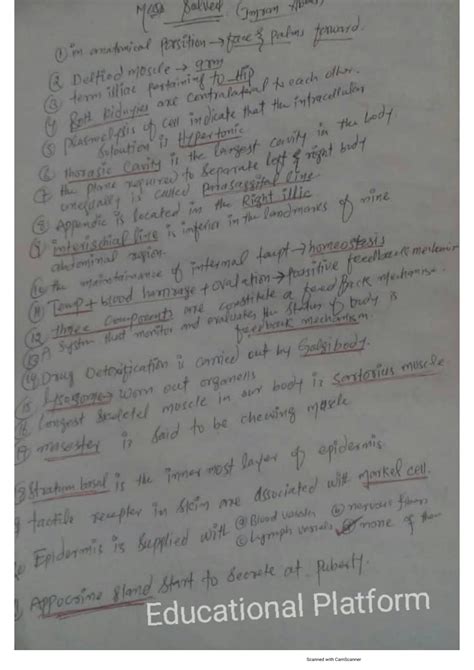 Solved
① in anatomical position → face & palms forward.
② Deltiod muscle → arm
③ term illiac pertaining to Hip
④ Both kidnies are contralatral to each other.
⑤ plasmolysis of cell indicate that the intracellular
Soloution is Hypertonic
⑥ thorasic cavity is the largest cavity in the body
⑦ the plane required to separate left & right body
unequally is called parasaggital line
⑧ Appendix is located in the Right illic
⑨ interischial line is inferior in the landmarks of nine
abdominal region.
⑩ the maintainance of internal → homeostasis
⑪ Temp + blood + ovulation → possitive feedback mechanism
⑫ three components are constitute a feedBack mechanism.
⑬ A system that monitor and evaluates the status of body is
feedback mechanism.
⑭ Drug Detoxification is carried out by
⑮ Lysosomes → worn out organells
Longest skeletal muscle in our body is Sartorius muscle
masseter is said to be chewing muscle
Stratum basal is the inner most layer of epidermis.
tactile recepter in skin are associated with markel cell.
Epidermis is supplied with ⓐ Blood vessels ⓑ nervous
ⓒ Lymph vessels ⓓ none of them
Appocrine gland start to secrete at puberty.
Educational Platform
Scanned with CamScanner